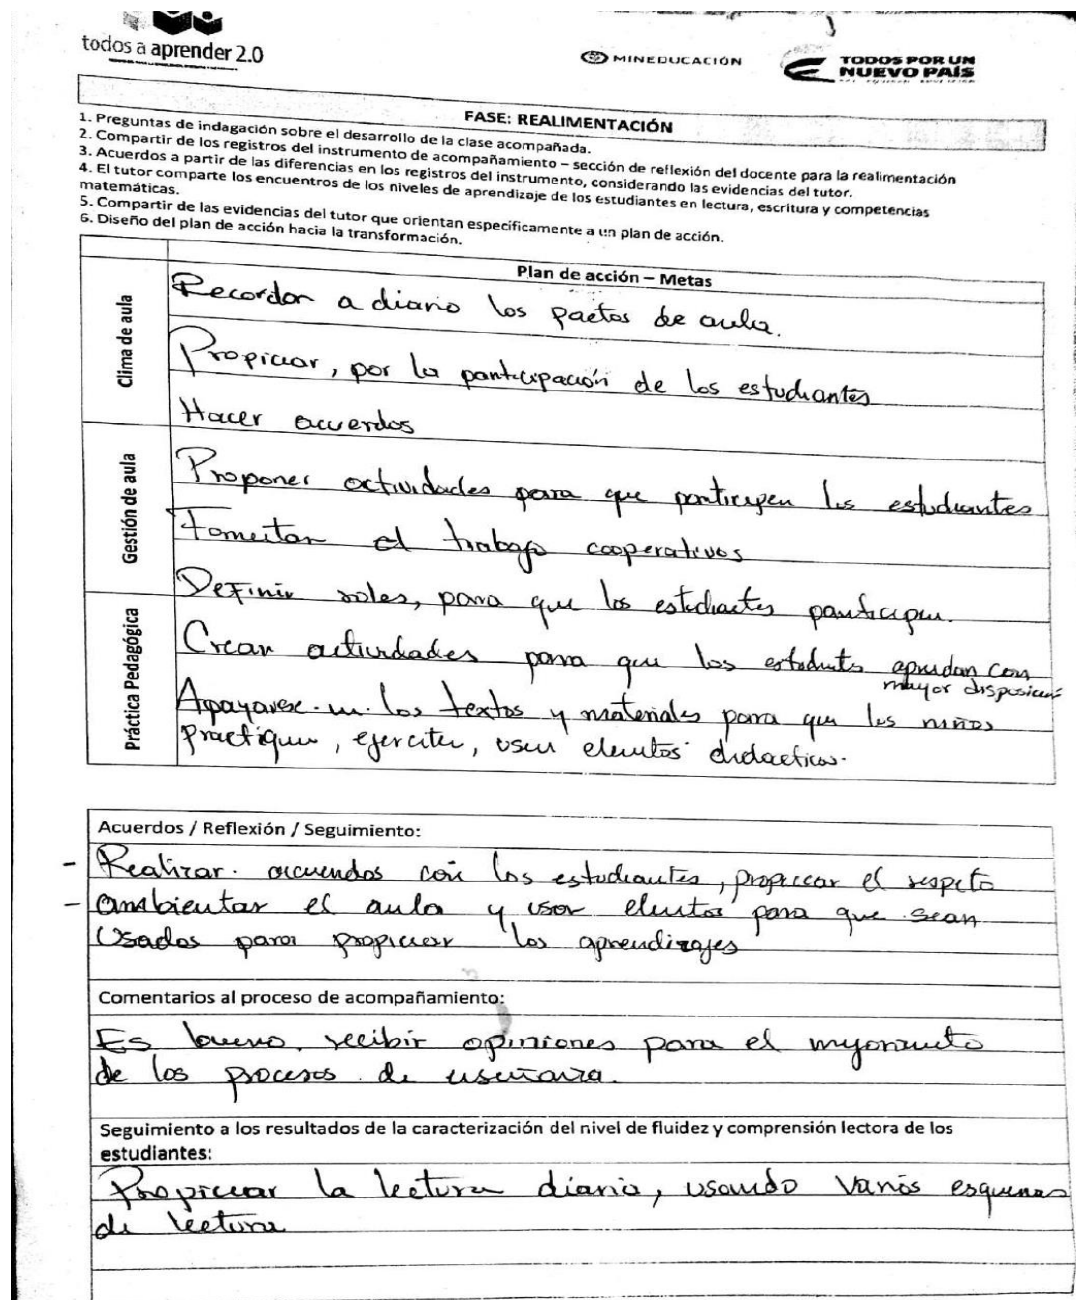 todos a aprender 2.0
MINEDUCACIÓN
TODOS POR UN
NUEVO PAÍS
FASE: REALIMENTACIÓN
1. Preguntas de indagación sobre el desarrollo de la clase acompañada.
2. Compartir de los registros del instrumento de acompañamiento – sección de reflexión del docente para la realimentación
3. Acuerdos a partir de las diferencias en los registros del instrumento, considerando las evidencias del tutor.
4. El tutor comparte los encuentros de los niveles de aprendizaje de los estudiantes en lectura, escritura y competencias
matemáticas.
5. Compartir de las evidencias del tutor que orientan específicamente a un plan de acción.
6. Diseño del plan de acción hacia la transformación.
Plan de acción – Metas
Clima de aula
Recordar a diario los pactos de aula.
Propiciar, por la participación de los estudiantes
Hacer acuerdos
Gestión de aula
Proponer actividades para que participen los estudiantes
Fomentar el trabajo cooperativos
Definir roles, para que los estudiantes participen.
Práctica Pedagógica
Crear actividades para que los estudiantes aprendan con
mayor disposición
Apoyarse en los textos y materiales para que los niños
practiquen, ejerciten, usen elementos didacticos.
Acuerdos / Reflexión / Seguimiento:
- Realizar acuerdos con los estudiantes, propiciar el respeto
- Ambientar el aula y usar elementos para que sean
Usados para propiciar los aprendizajes
Comentarios al proceso de acompañamiento:
Es bueno recibir opiniones para el mejoramiento
de los procesos de enseñanza.
Seguimiento a los resultados de la caracterización del nivel de fluidez y comprensión lectora de los
estudiantes:
Propiciar la lectura diario, usando varios esquemas
de lectura